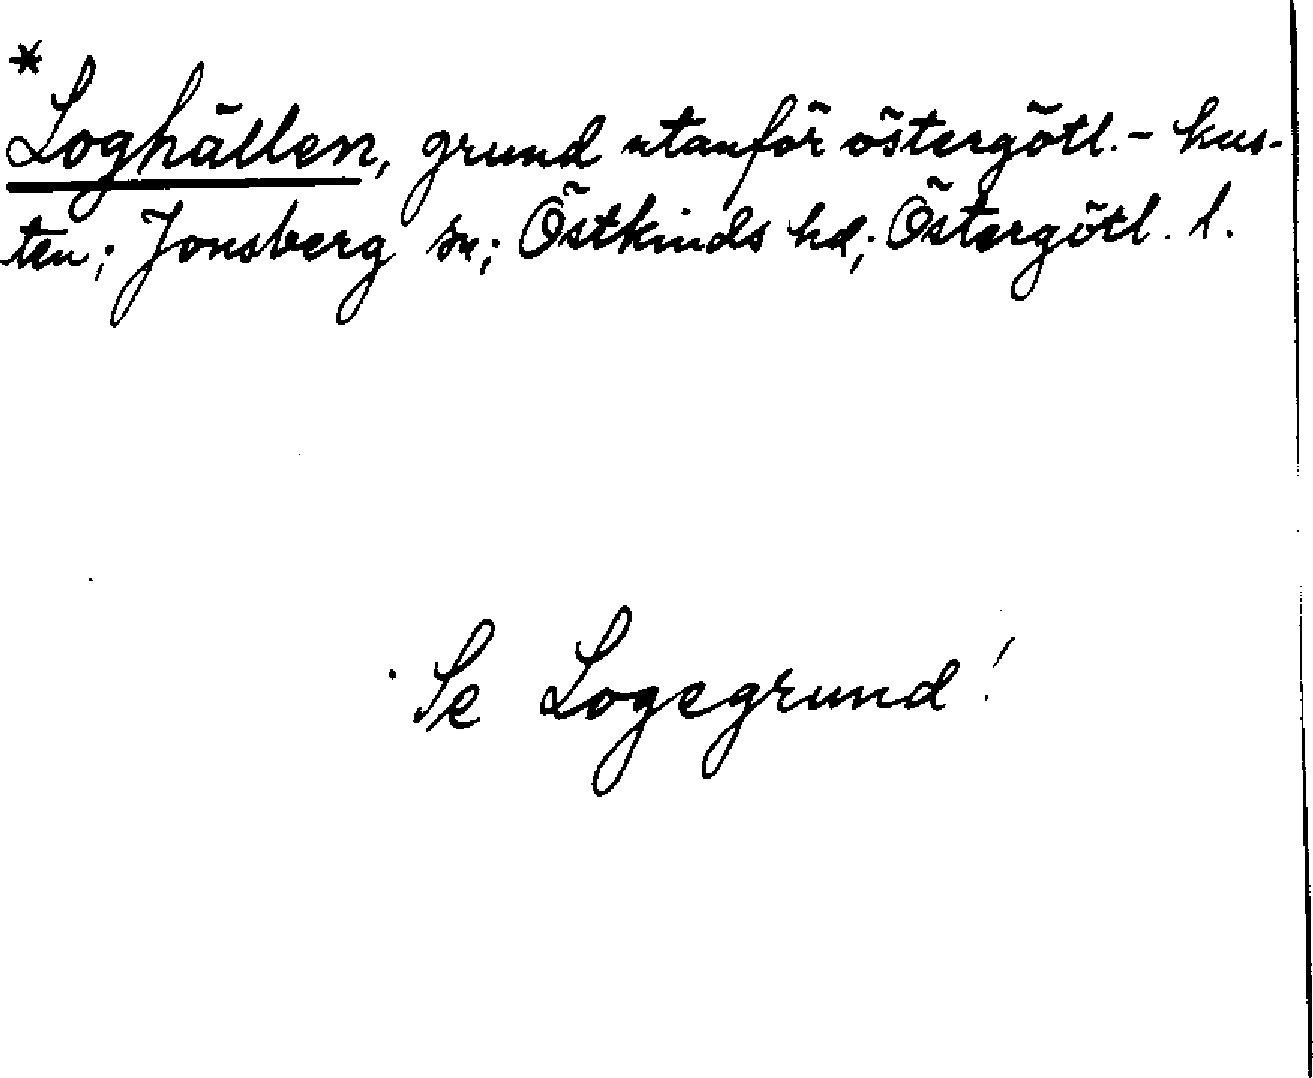 *
Loghällen, grund utanför östergötl.- kus-
ten; Jonsberg sn; Östkinds hd; Östergötl. l.
Se Logegrund!